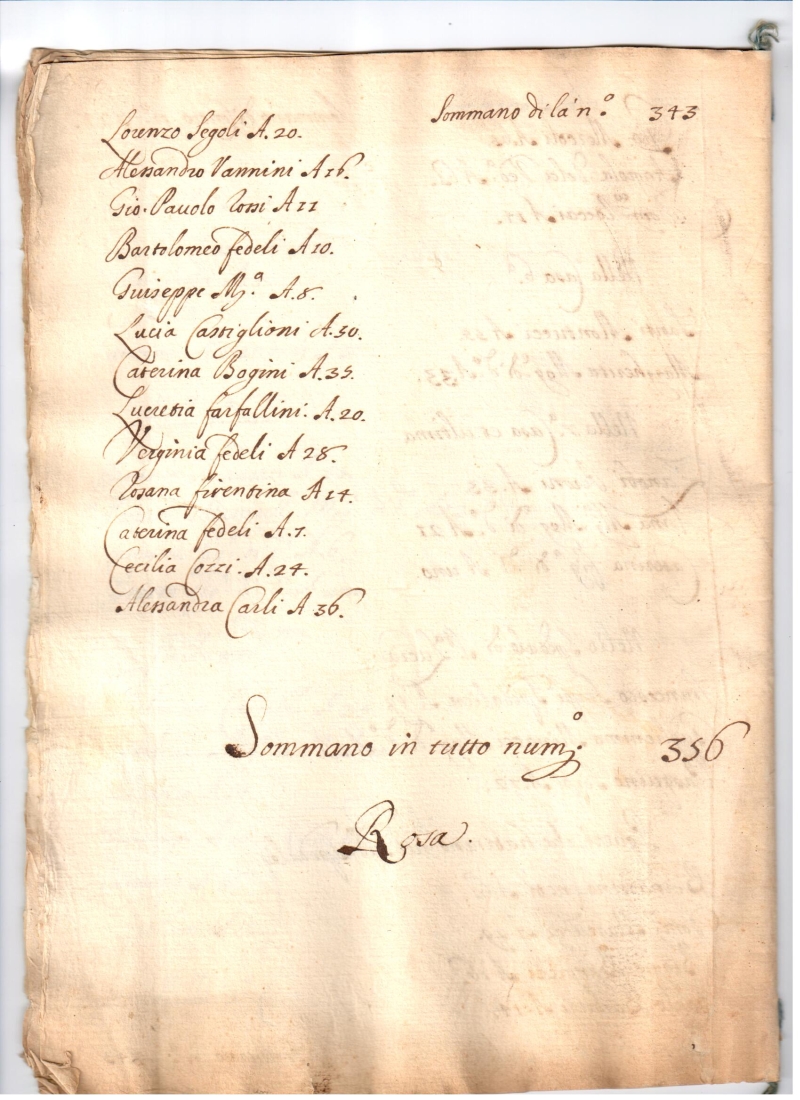 Sommano di là n.º 343
Lorenzo Segoli A. 20.
Alessandro Vannini A 16.
Gio. Pavolo Rossi A 11
Bartolomeo fedeli A 10.
Guiseppe M.ª A. 8.
Lucia Castiglioni A. 50.
Caterina Bogini A. 35.
Lucretia farfallini. A. 20
Verginia fedeli A 28.
Rosana firentina A 14.
Caterina fedeli A. 7.
Cecilia Cozzi. A. 24.
Alessandra Carli A 36.
Sommano in tutto num.º 356
Rosa.